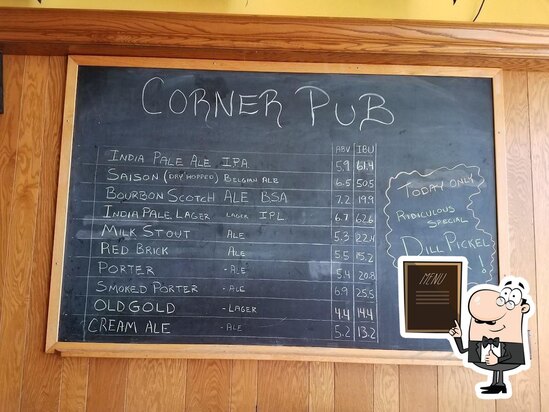 CORNER PUB
ABV IBU
INDIA PALE ALE IPA 5.9 61.4
SAISON (DRY HOPPED) BELGIAN ALE 6.5 50.5
BOURBON SCOTCH ALE BSA 7.2 19.9
INDIA PALE LAGER LAGER IPL 6.7 62.6
MILK STOUT ALE 5.3 22.4
RED BRICK ALE 5.5 15.2
PORTER - ALE 5.4 20.8
SMOKED PORTER - ALE 6.9 25.5
OLD GOLD - LAGER 4.4 14.4
CREAM ALE - ALE 5.2 13.2
TODAY ONLY
RIDICULOUS
SPECIAL
DILL PICKEL
!
MENU